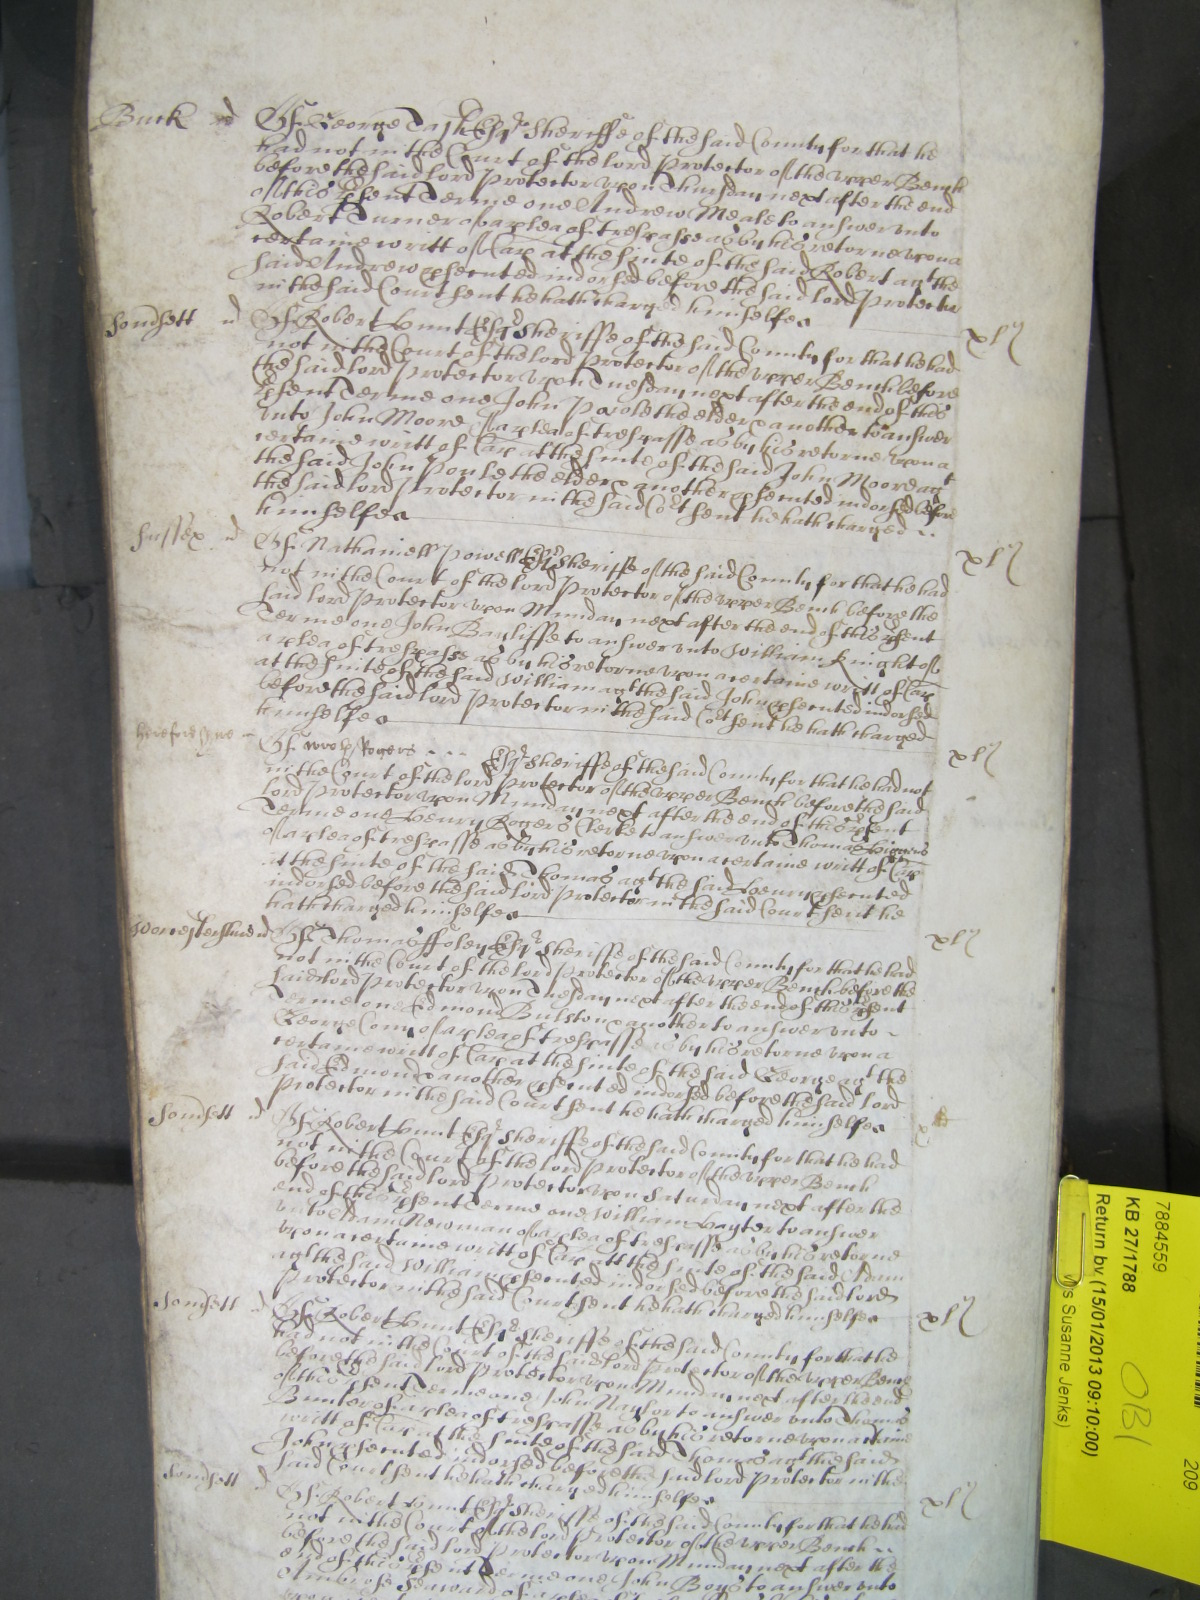 Buck ss Of George Tash Esqr Sheriffe of the said County for that he
had not in the Court of the lord Protector of the upper Bench
before the said lord Protector upon Thursday next after the end
of this psent Terme one Andrew Meale to answer unto
Robert Turner of a plea of trespasse as by his retorne upon a
certaine writt of Cap at the suite of the said Robert agt the
said Andrew psented indorsed before the said lord Protector
in the said Court sent he hath charged himselfe
xls
Somsett ss Of Robert Hunt Esqr Sheriffe of the said County for that he had
not in the Court of the lord Protector of the upper Bench before
the said lord Protector upon Tuesday next after the end of this
psent Terme one John Poole the elder & another to answer
unto John Moore of a plea of trespasse as by his retorne upon a
certaine writt of Cap at the suite of the said John Moore agt
the said John Poole the elder & another psented indorsed before
the said lord Protector in the said Cort sent he hath charged
himselfe
xls
Sussex ss Of Nathaniell Powell Esqr Sheriffe of the said County for that he had
not in the Court of the lord Protector of the upper Bench before the
said lord Protector upon Munday next after the end of this psent
Terme one John Bayliffe to answer unto William Knight of
a plea of trespasse as by his retorne upon a certaine writt of Cap
at the suite of the said William agt the said John psented indorsed
before the said lord Protector in the said Cort sent he hath charged
himselfe
xls
Of Rogers Esqr Sheriffe of the said County for that he had not
in the Court of the lord Protector of the upper Bench before the said
lord Protector upon Munday next after the end of this psent
Terme one Henry Rogers Clerke to answer unto Thomas
of a plea of trespasse as by his retorne upon a certaine writt of Cap
at the suite of the said Thomas agt the said Henry psented
indorsed before the said lord Protector in the said Court sent he
hath charged himselfe
xls
Worcestershire ss Of Thomas Ffoley Esqr Sheriffe of the said County for that he had
not in the Court of the lord Protector of the upper Bench before the
said lord Protector upon Tuesday next after the end of this psent
Terme one Edmond Bulston & another to answer unto
George of a plea of trespasse as by his retorne upon a
certaine writt of Cap at the suite of the said George agt the
said Edmond & another psented indorsed before the said lord
Protector in the said Court sent he hath charged himselfe
Somsett ss Of Robert Hunt Esqr Sheriffe of the said County for that he had
not in the Court of the lord Protector of the upper Bench
before the said lord Protector upon Saturday next after the
end of this psent Terme one William Hayter to answer
unto Adam Newman of a plea of trespasse as by his retorne
upon a certaine writt of Cap att the suite of the said Adam
agt the said William psented indorsed before the said lord
Protector in the said Court sent he hath charged himselfe
xls
Somsett ss Of Robert Hunt Esqr Sheriffe of the said County for that he
had not in the Court of the said lord Protector of the upper Bench
before the said lord Protector upon Munday next after the end
of this psent Terme one John Naylor to answer unto Thomas
of a plea of trespasse as by his retorne upon a certaine
writt of Cap at the suite of the said Thomas agt the said
John psented indorsed before the said lord Protector in the
said Court sent he hath charged himselfe
xls
Somsett ss Of Robert Hunt Esqr Sheriffe of the said County for that he had
not in the Court of the lord Protector of the upper Bench
before the said lord Protector upon Munday next after the
end of this psent Terme one John Boys to answer unto
Ambrose of a plea
7884559
KB 27/1788
Return by (15/01/2013 09:10:00)
Susanne Jenks)
OBI
209